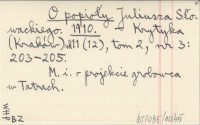 O popioły Juliusza Sło-
wackiego. 1910. - Krytyka
(Kraków) R11 (12), tom 2, nr 3:
203-205.
M. i. o projekcie grobowca
w Tatrach.
BZ